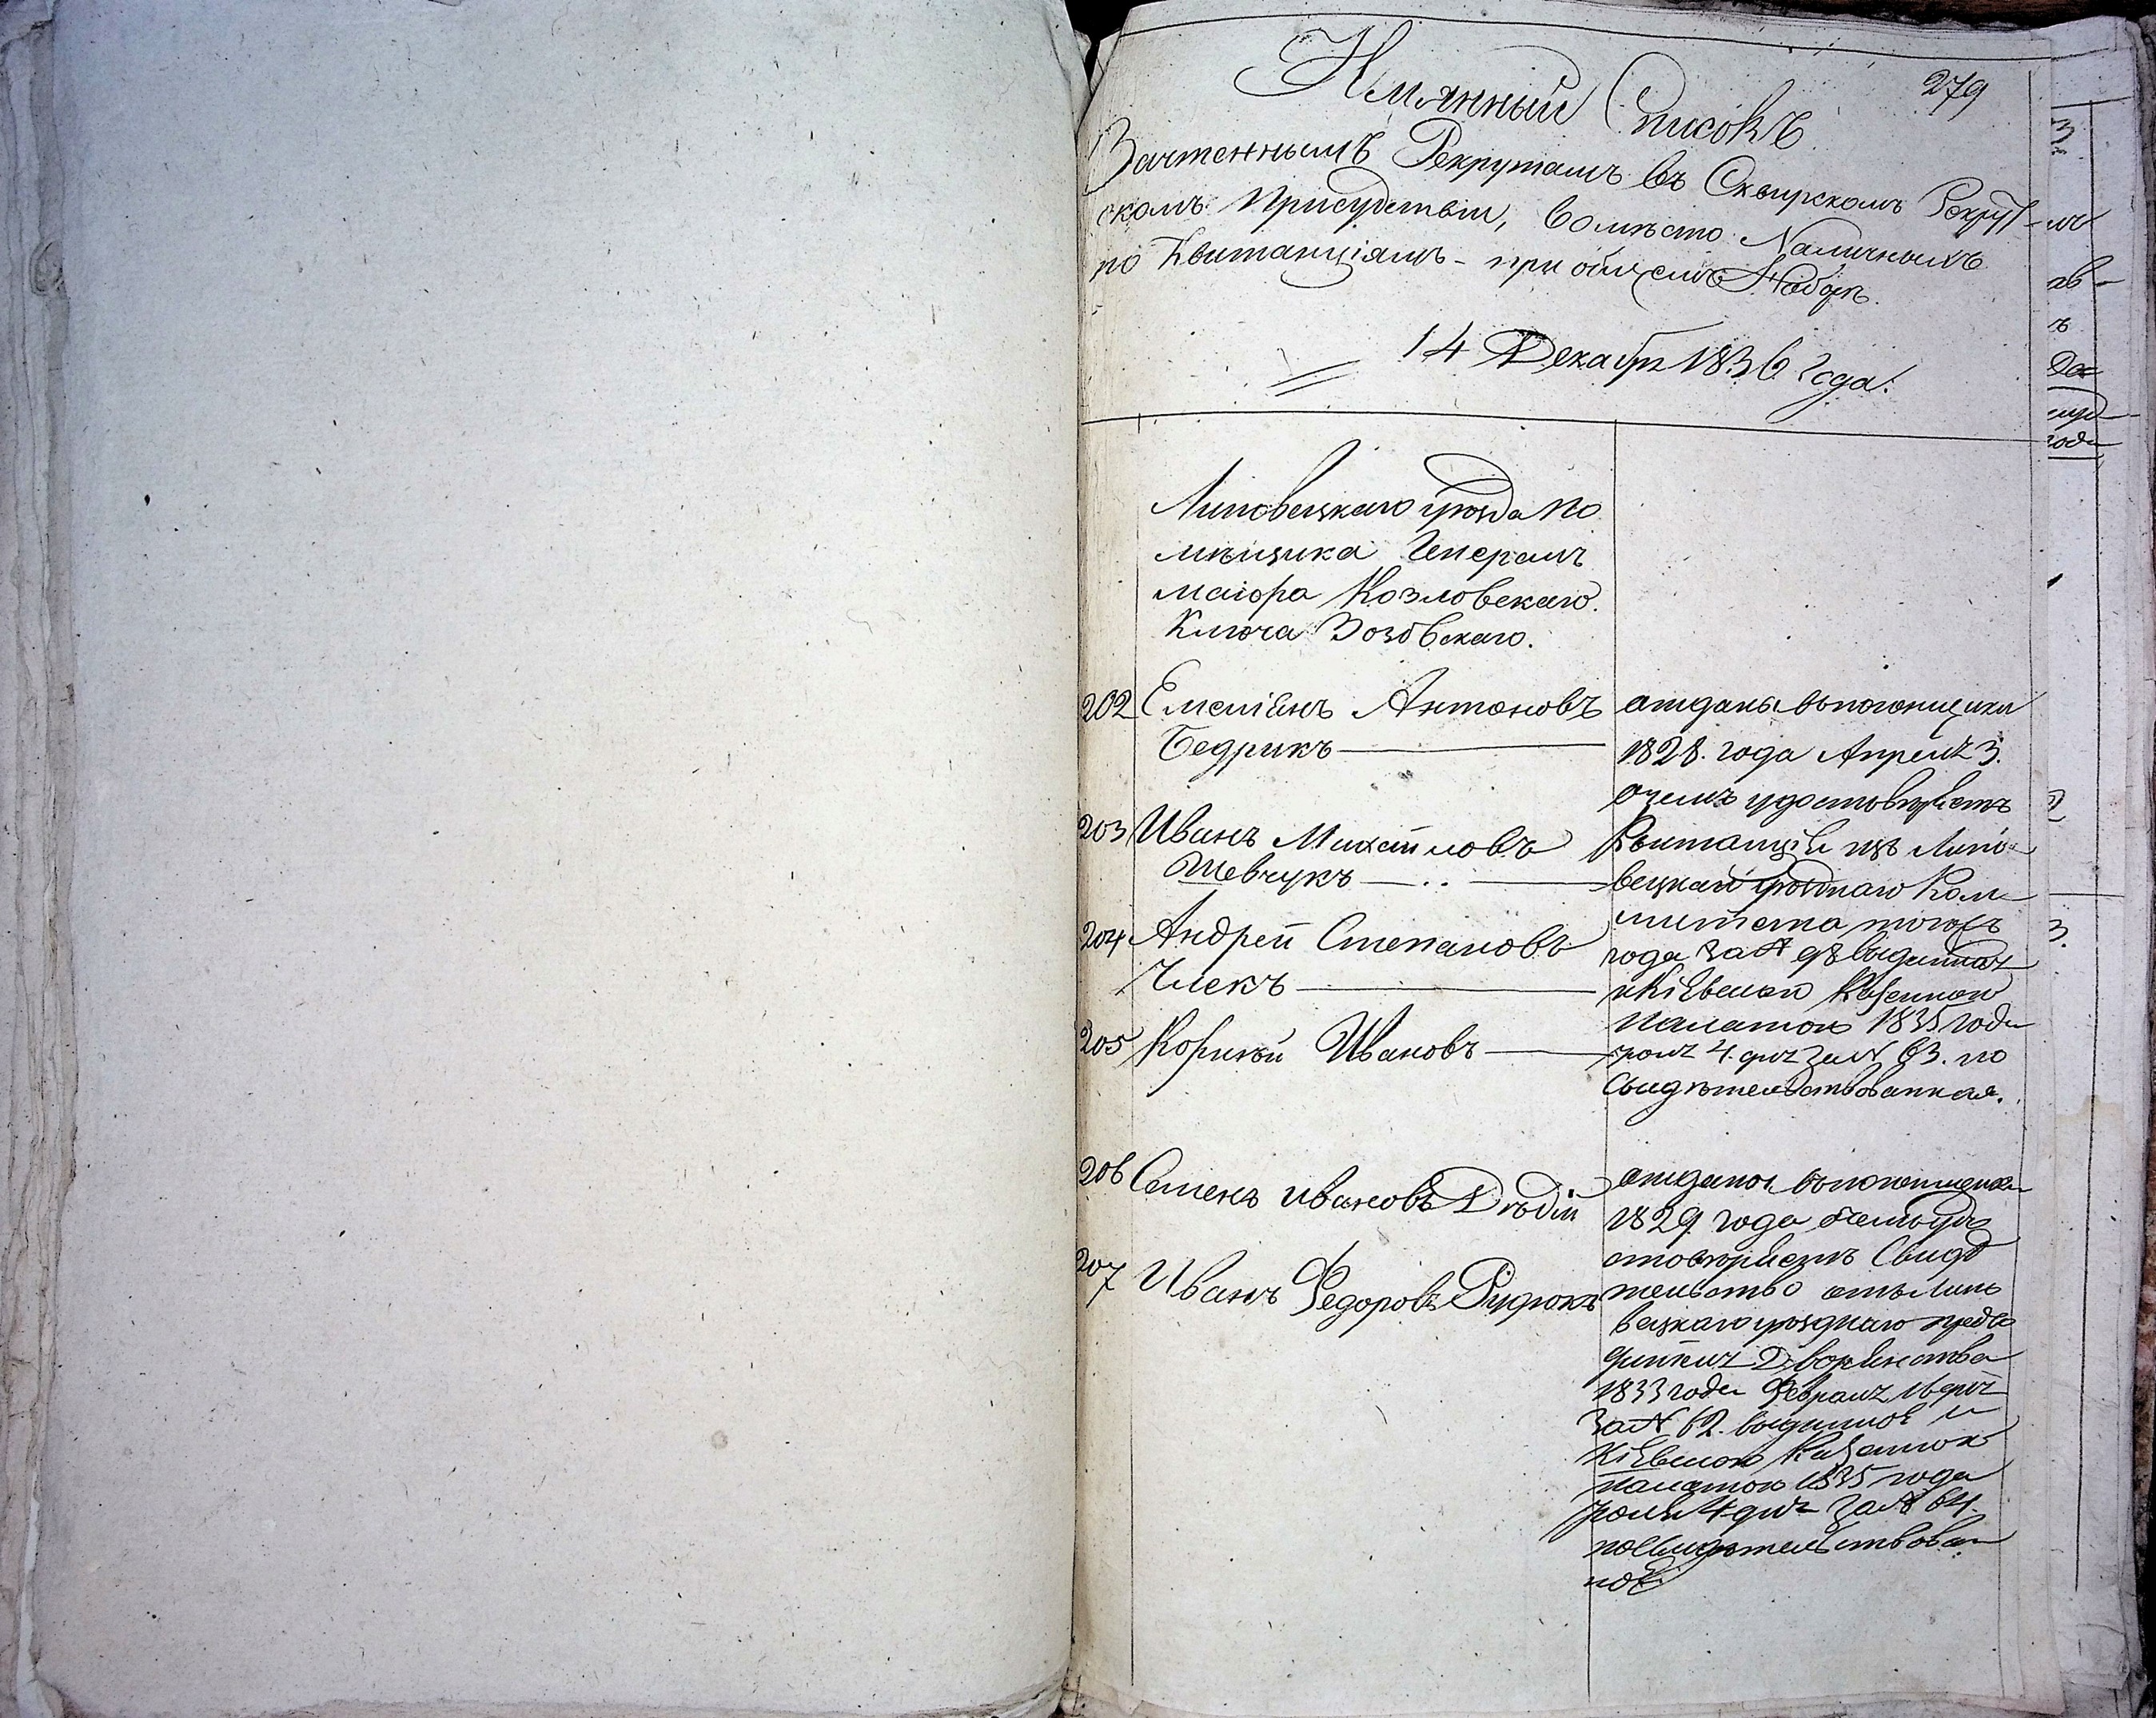 279
Имянный Списокъ
Зачтеннымъ Рекрутамъ въ Сквирскомъ Рекрут-
скомъ Присудствіи, вомѣсто Наличныхъ
по Квитанціямъ - при общемъ Наборѣ.
14 Декабря 1836 года.
Липовецкаго уѣзда по
мѣщика Генералъ
маіора Козловскаго.
Ключа Зозовскаго.
202 Емеліянъ Антоновъ
Бедрикъ
203 Иванъ Михайловъ
Шевчукъ
204 Андрей Степановъ
Члекъ
205 Корнѣй Ивановъ
206 Семенъ Ивановъ Дѣдій
207 Иванъ Федоровъ Рудюкъ
отданы вьпогонщики
1828. года Апреля 3.
очемъ удостовѣряетъ
Квитанція изъ Липо-
вецкаго уѣзднаго Ком-
митета тогожъ
года за № 98 выданная
и Кіевскою Казенною
палатою 1835 года
4. дня за № 63. по
свидѣтельствованная.
отданы вьпогонщики
1829. года очемъ удо
стовѣряетъ Свидѣ
тельство отъ Липо
вецкаго уѣзднаго предво
дителя Дворянства
1833 года Февраля 16 дня
за № 62. выданное и
Кіевскою Казенною
палатою 1835 года
4 дня за № 64.
посвидѣтельствован
ное.